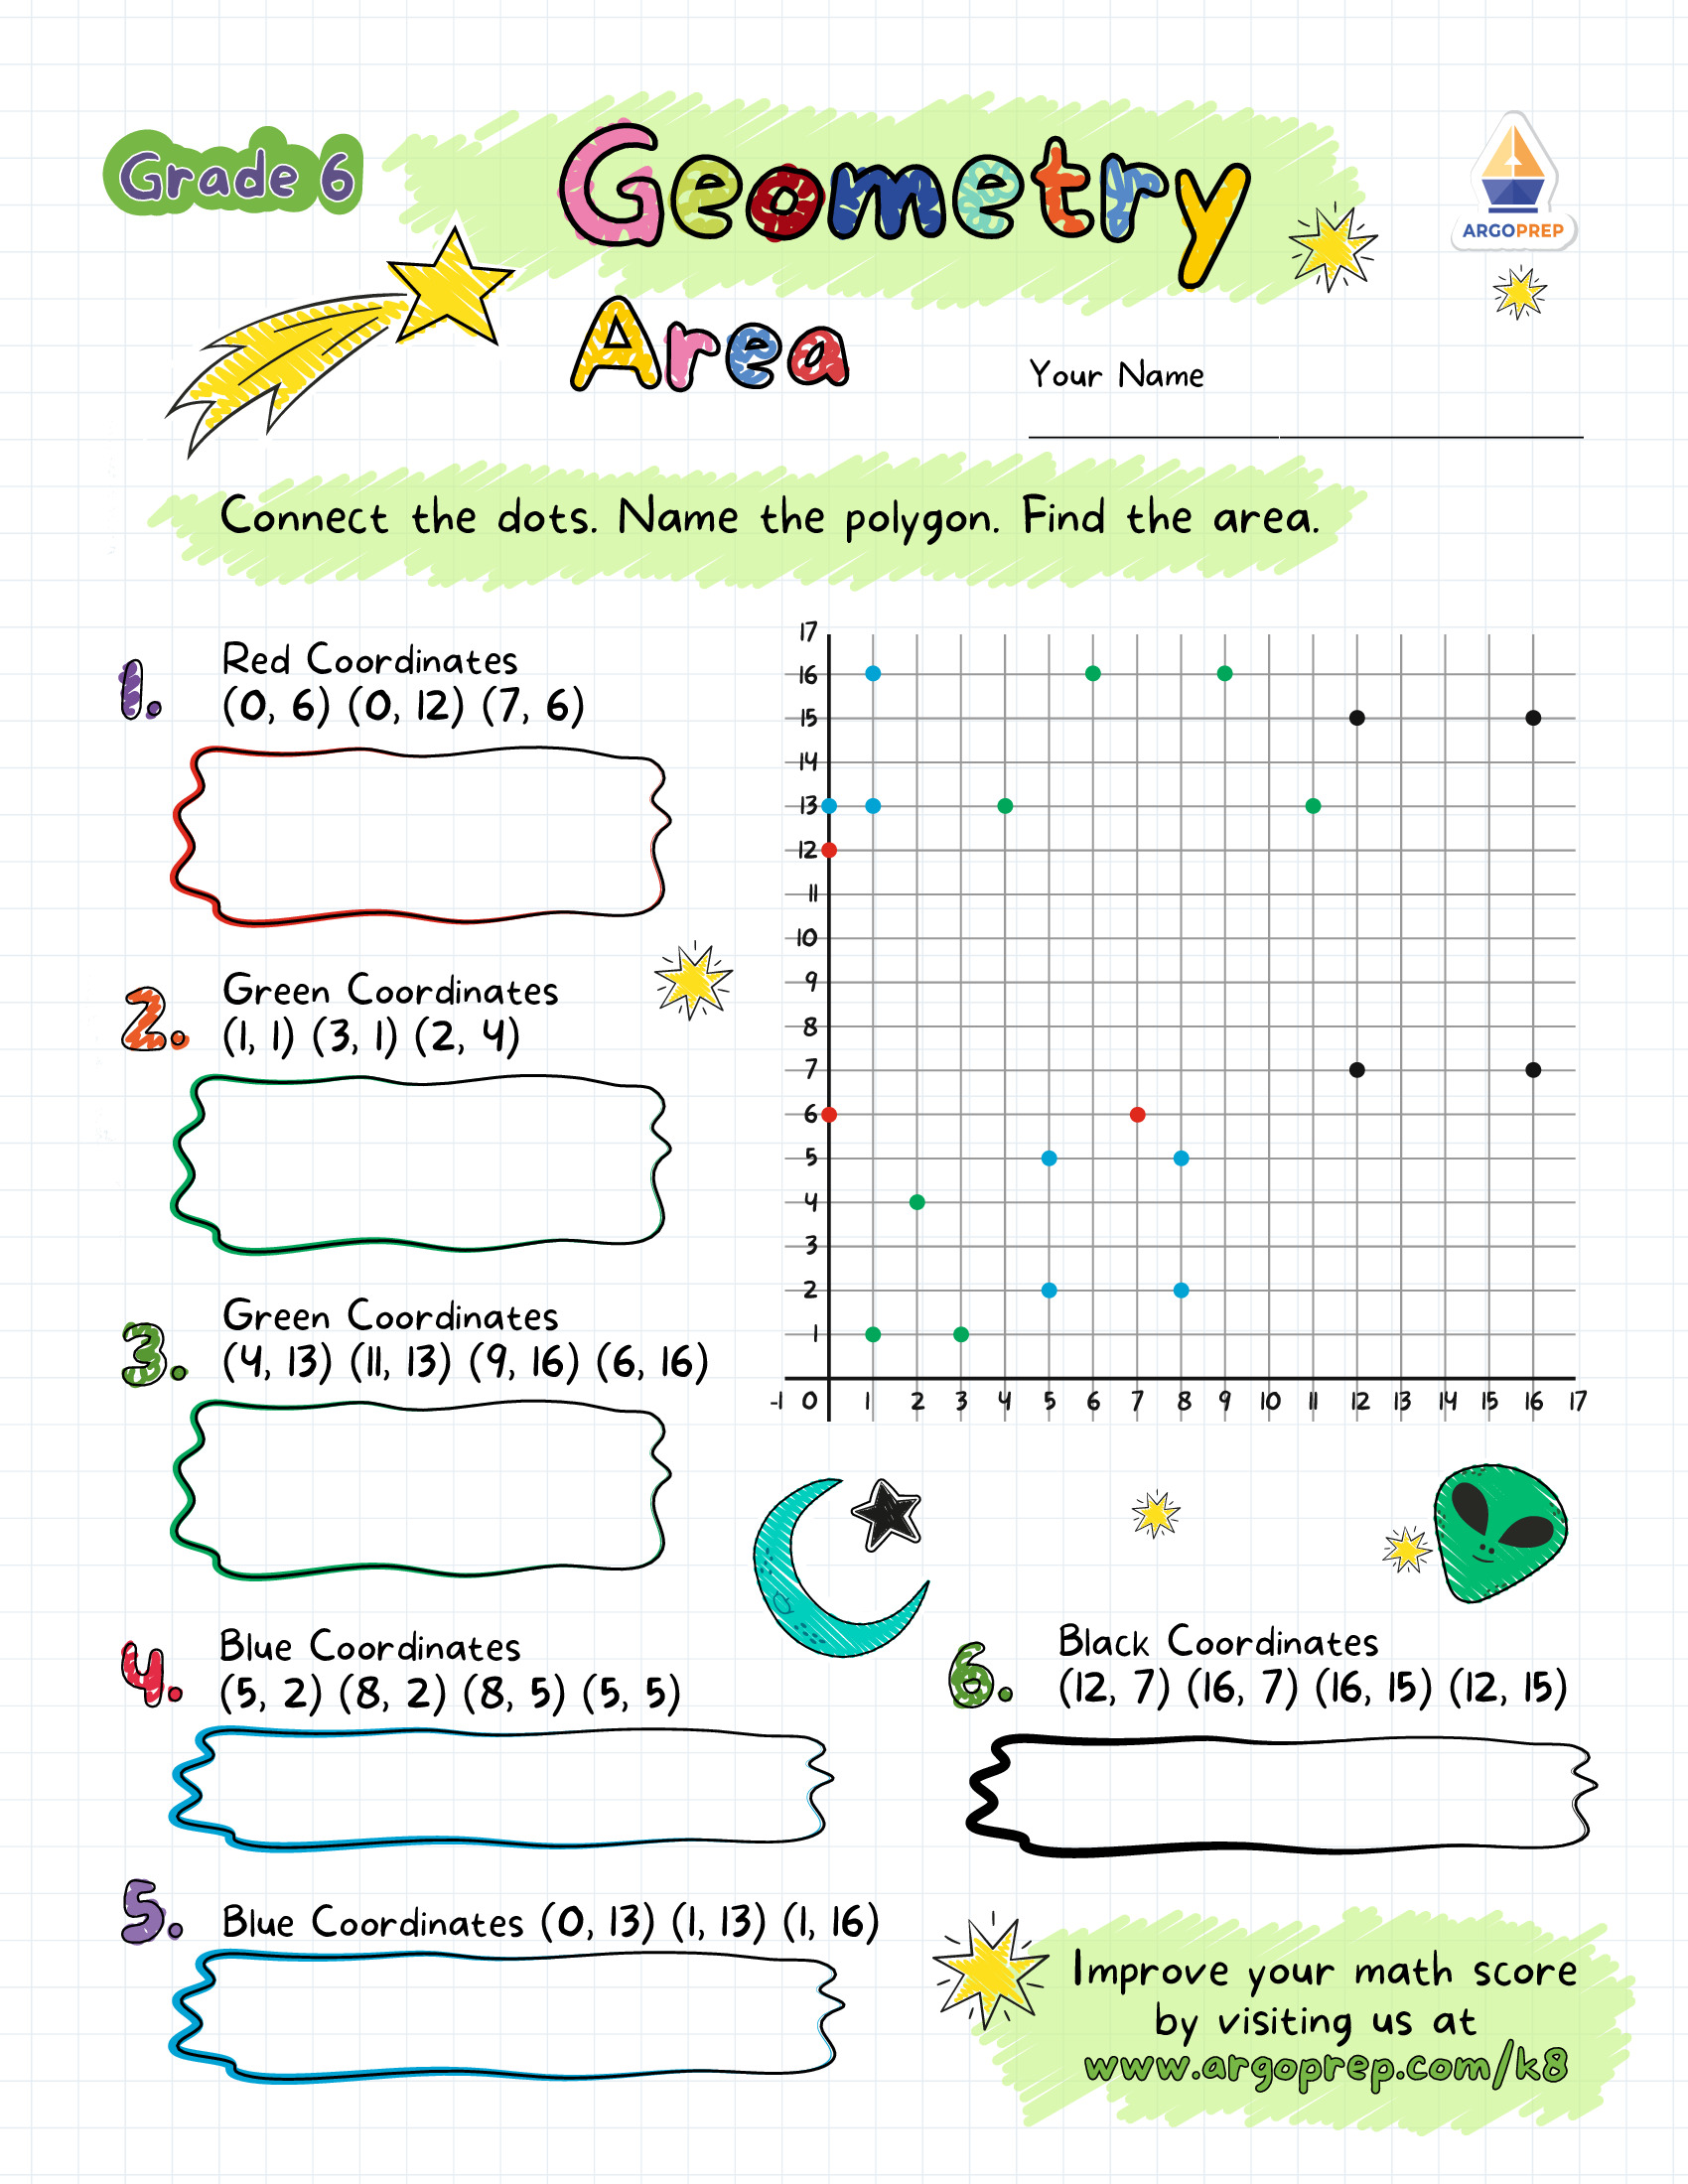 Grade 6
Geometry
ARGOPREP
Area
Your Name
Connect the dots. Name the polygon. Find the area.
1.
Red Coordinates
(0, 6) (0, 12) (7, 6)
2.
Green Coordinates
(1, 1) (3, 1) (2, 4)
3.
Green Coordinates
(4, 13) (11, 13) (9, 16) (6, 16)
17
16
15
14
13
12
11
10
9
8
7
6
5
4
3
2
1
-1 0 1 2 3 4 5 6 7 8 9 10 11 12 13 14 15 16 17
4.
Blue Coordinates
(5, 2) (8, 2) (8, 5) (5, 5)
5.
Blue Coordinates (0, 13) (1, 13) (1, 16)
6.
Black Coordinates
(12, 7) (16, 7) (16, 15) (12, 15)
Improve your math score
by visiting us at
www.argoprep.com/k8